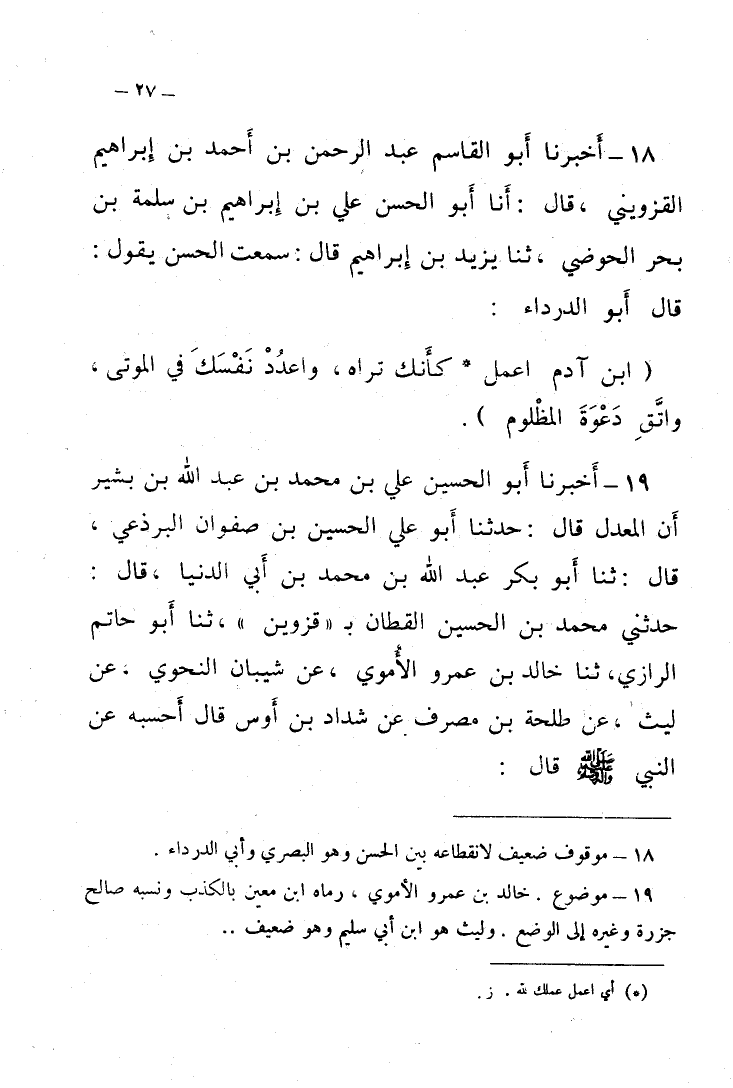 ـ ٢٧ ـ
١٨ ـ أَخبرنا أَبو القاسم عبد الرحمن بن أَحمد بن إِبراهيم
القزويني ، قال : أَنا أَبو الحسن علي بن إِبراهيم بن سلمة بن
بحر الحوضي ، ثنا يزيد بن إِبراهيم قال : سمعت الحسن يقول :
قال أَبو الدرداء :
( ابن آدم اعمل * كأَنك تراه ، واعدُدْ نَفْسَكَ في الموتى ،
واتَّقِ دَعْوَةَ المظْلوم ) .
١٩ ـ أَخبرنا أَبو الحسين علي بن محمد بن عبد الله بن بشير
أَن المعدل قال : حدثنا أَبو علي الحسين بن صفوان البرذعي ،
قال : ثنا أَبو بكر عبد الله بن محمد بن أَبي الدنيا ، قال :
حدثني محمد بن الحسين القطان بـ « قزوين » ، ثنا أَبو حاتم
الرازي ، ثنا خالد بن عمرو الأُموي ، عن شيبان النحوي ، عن
ليث ، عن طلحة بن مصرف عن شداد بن أَوس قال أَحسبه عن
النبي ﷺ قال :
١٨ ـ موقوف ضعيف لانقطاعه بين الحسن وهو البصري وأبي الدرداء .
١٩ ـ موضوع . خالد بن عمرو الأموي ، رماه ابن معين بالكذب ونسبه صالح
جزرة وغيره إلى الوضع . وليث هو ابن أبي سليم وهو ضعيف ..
(*) أي اعمل عملك لله . ز .